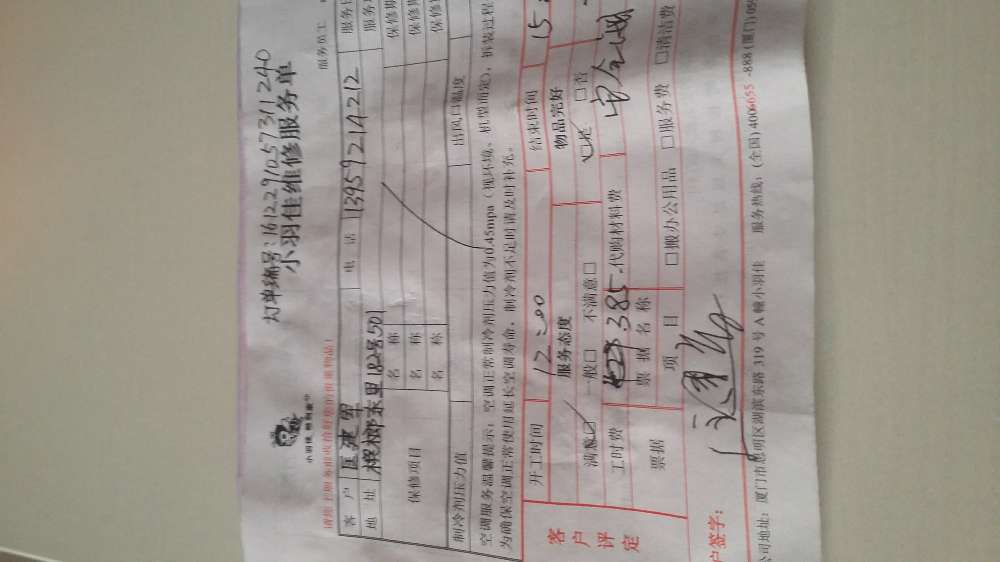 灯单编号:161229105731240
小羽佳维修服务单
小羽佳
服务员工
客户 匡建军 电话 13959214212 服务
地址 槟榔东里182号501 服务
保修项目 名称 保修期
名称 保修期
名称 保修
制冷剂压力值 出风口温度
空调服务温馨提示:空调正常制冷剂压力值为0.45mpa(视环境、机型而定),拆装过程
为确保空调正常使用延长空调寿命,制冷剂不足时请及时补充。
客户评定
开工时间 12:00 结束时间 15
服务态度 物品完好
满意☑ 一般□ 不满意□ ☑是 □否
工时费 385 代购材料费
票据 票据名称
项目 □搬办公用品 □服务费 □清洁费
户签字:
公司地址:厦门市思明区湖滨东路319号A幢小羽佳 服务热线:(全国)4006055-888(厦门)059